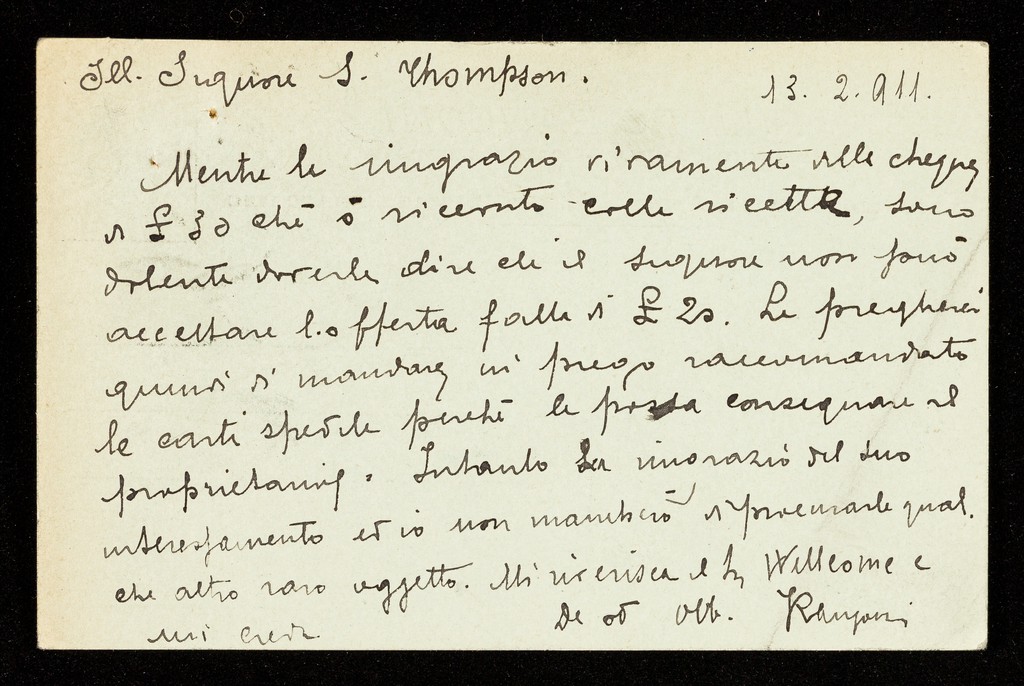 Ill. Signore S. Thompson.
13. 2. 911.
Mentre la ringrazio vivamente della cheque
di £ 30 che ò ricevuto colle ricette, sono
dolente doverle dire che il Signore non può
accettare l'offerta falla di £ 20. Le pregherei
quindi di mandare in piego raccomandato
le carte spedite perché le possa consegnare al
proprietario. Intanto La ringrazio del suo
interessamento ed io non mancherò di procurarle qual.
che altro raro oggetto. Mi riverisca il Sr Wellcome e
mi creda De Obb.